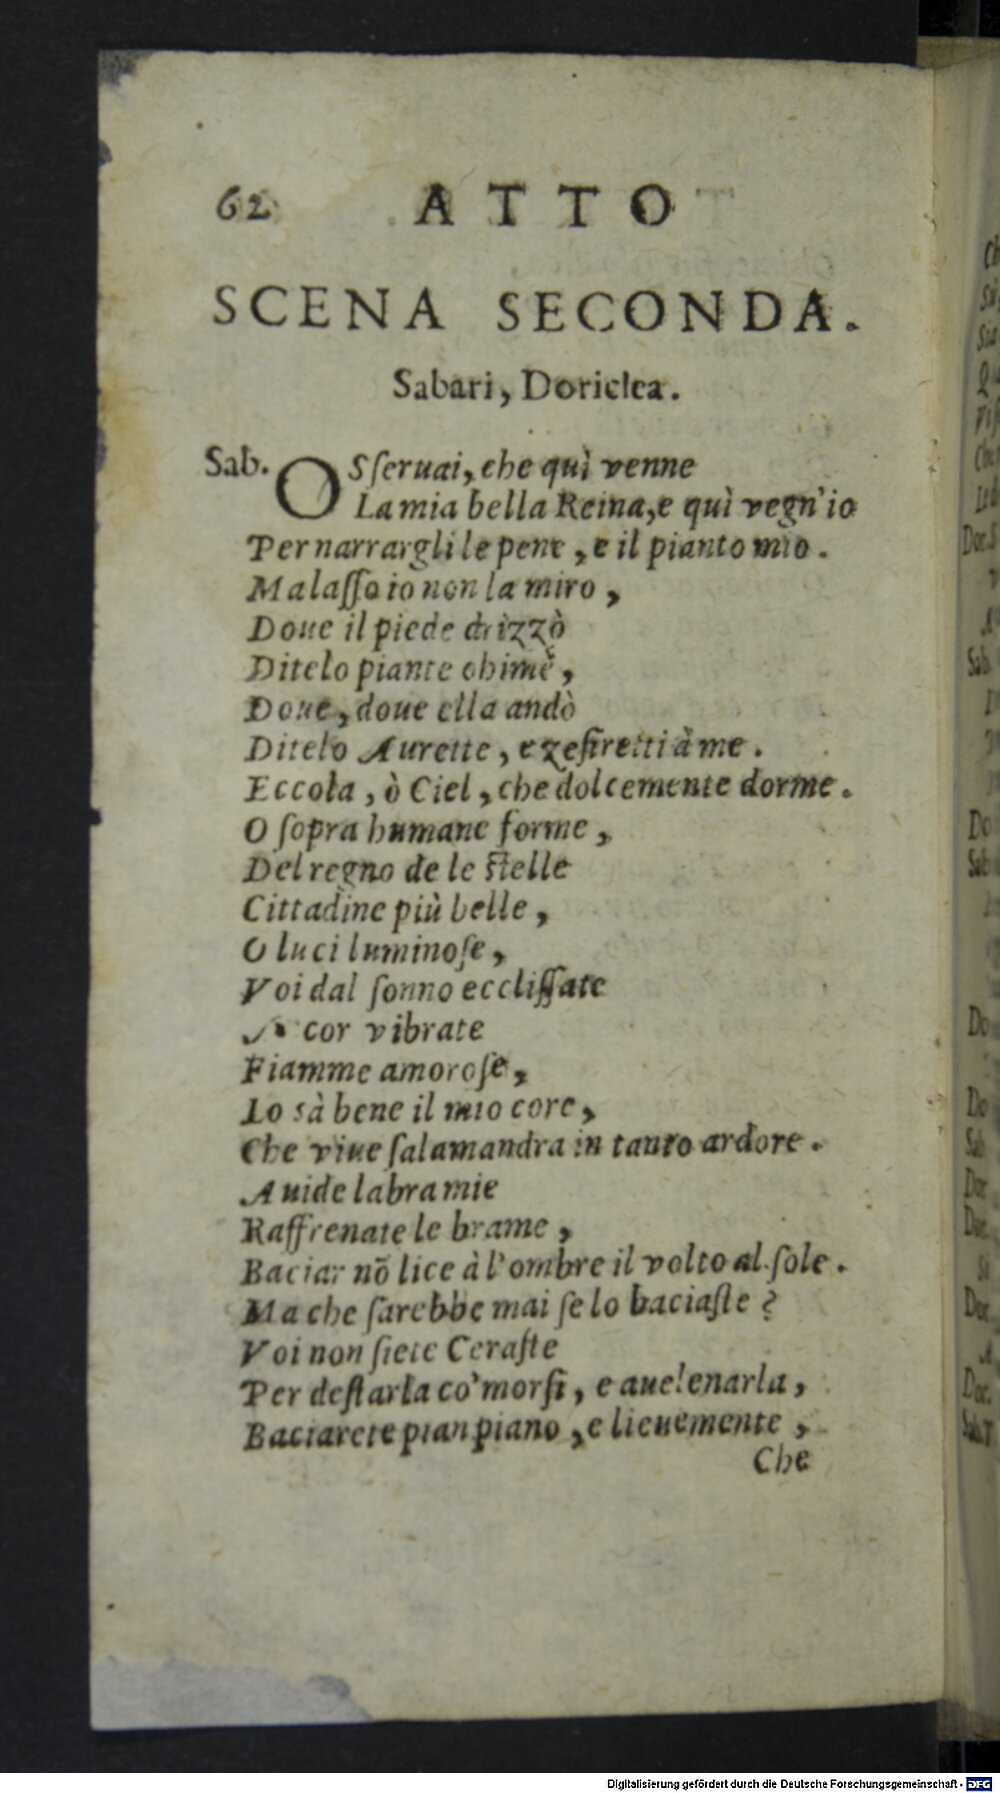 62 ATTO
SCENA SECONDA.
Sabari, Doriclea.
Sab. OSſeruai, che quì venne
La mia bella Reina, e quì vegn'io
Per narrargli le pene, e il pianto mio.
Ma laſſo io non la miro,
Doue il piede drizzò
Ditelo piante ohimè,
Doue, doue ella andò
Ditelo Aurette, e zefiretti à me.
Eccola, ò Ciel, che dolcemente dorme.
O ſopra humane forme,
Del regno de le ſtelle
Cittadine più belle,
O luci luminoſe,
Voi dal ſonno eccliſſate
cor vibrate
Fiamme amoroſe,
Lo sà bene il mio core,
Che viue ſalamandra in tanto ardore.
Auide labra mie
Raffrenate le brame,
Baciar nō lice à l'ombre il volto al ſole.
Ma che ſarebbe mai ſe lo baciaſte?
Voi non ſiete Ceraſte
Per deſtarla co'morſi, e auelenarla,
Baciarete pian piano, e lieuemente,
Che
Digitalisierung gefördert durch die Deutsche Forschungsgemeinschaft - DFG